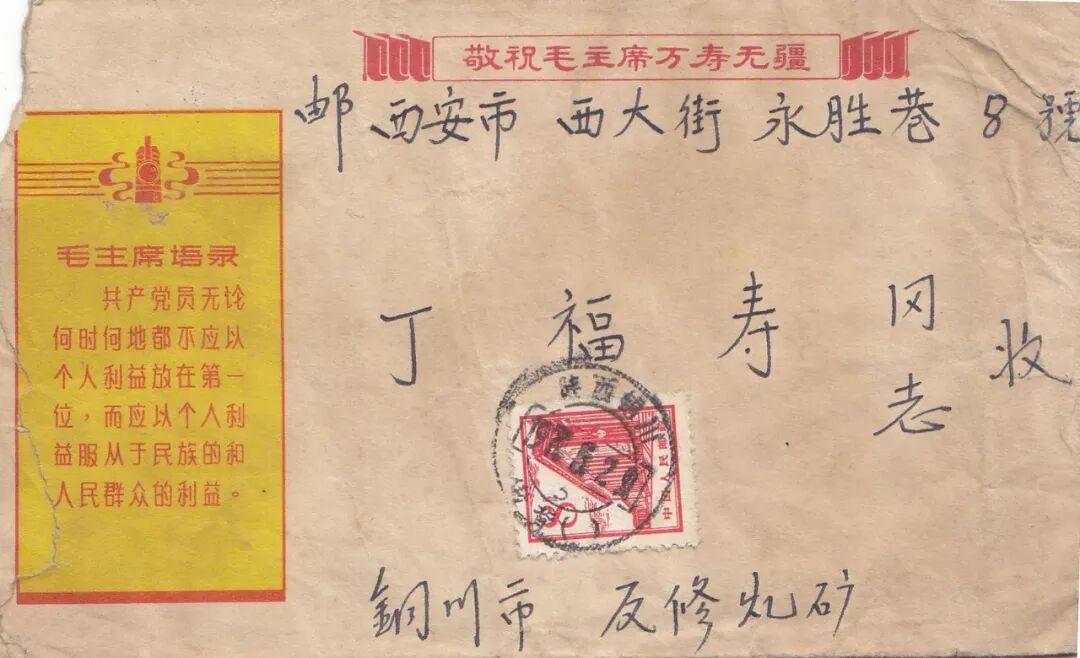 敬祝毛主席万寿无疆
邮 西安市 西大街 永胜巷 8 號
毛主席语录
共产党员无论
何时何地都不应以
个人利益放在第一
位，而应以个人利
益服从于民族的和
人民群众的利益。
丁 福 寿 同志 收
陕西铜川
8
铜川市 反修 矿